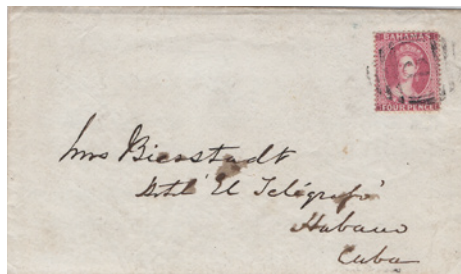 BAHAMAS
FOUR PENCE
Mrs Bierstadt
Hotel 'El Telégrafo'
Habana
Cuba